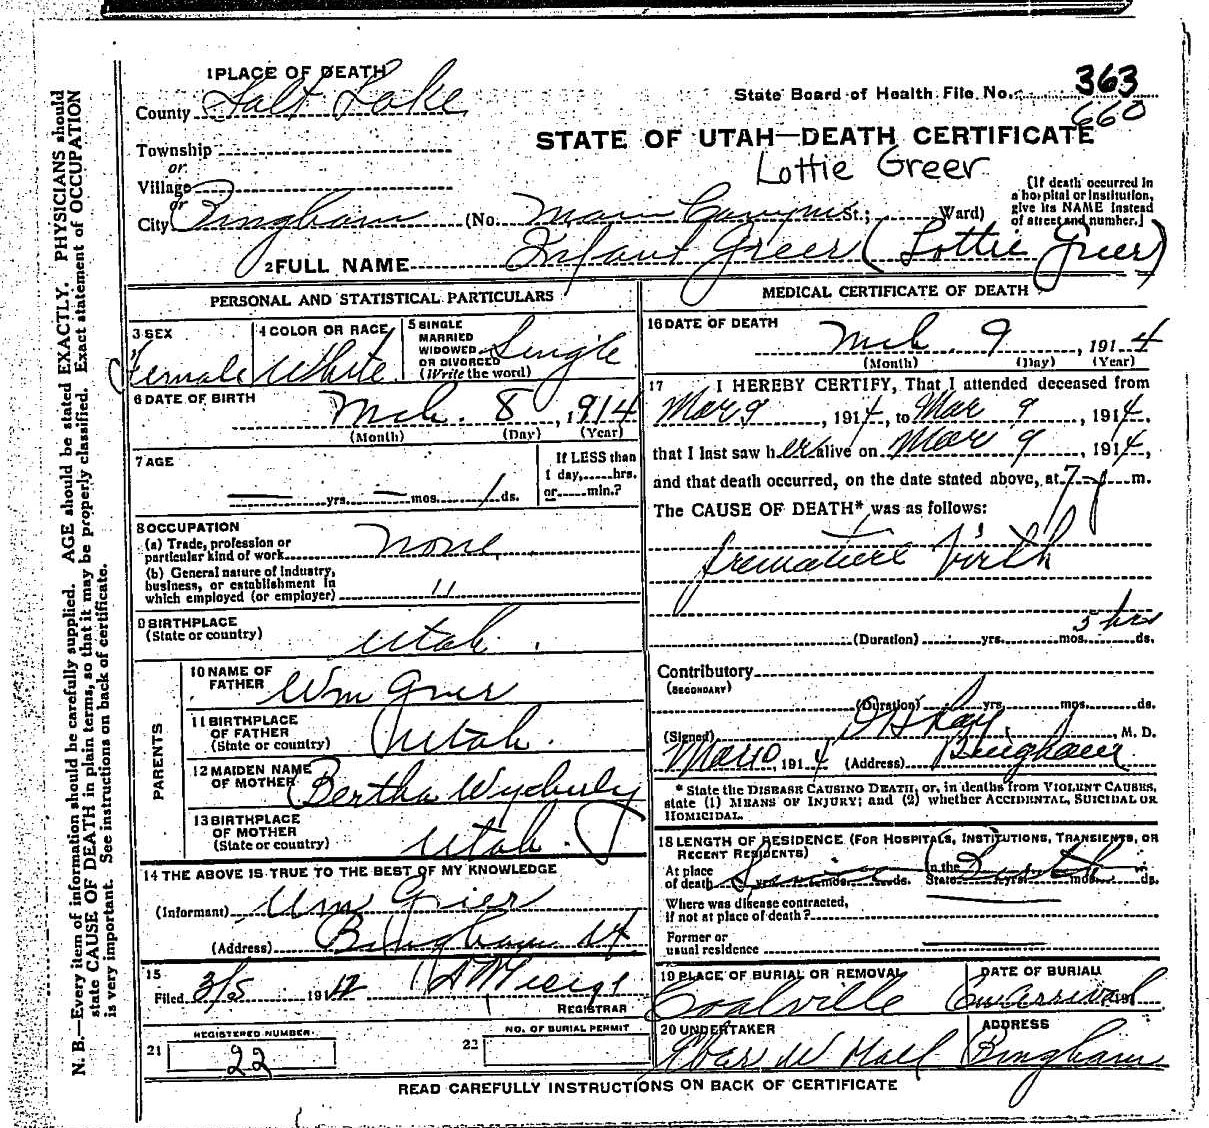 1 PLACE OF DEATH
County Salt Lake
State Board of Health File No. 363
660
STATE OF UTAH—DEATH CERTIFICATE
Township
or
Village
or
Lottie Greer
City Bingham (No. Main Canyon St.; Ward)
[If death occurred in
a hospital or institution,
give its NAME instead
of street and number.]
2 FULL NAME Infant Greer (Lottie Greer)
PERSONAL AND STATISTICAL PARTICULARS
3 SEX
Female
4 COLOR OR RACE
White
5 SINGLE
MARRIED
WIDOWED
OR DIVORCED
(Write the word)
Single
6 DATE OF BIRTH
Mch. 8, 1914
(Month) (Day) (Year)
7 AGE
— yrs. — mos. 1 ds.
If LESS than
1 day, hrs.
or min.?
8 OCCUPATION
(a) Trade, profession or
particular kind of work none
(b) General nature of industry,
business, or establishment in
which employed (or employer) "
9 BIRTHPLACE
(State or country) Utah.
PARENTS
10 NAME OF
FATHER Wm Grier
11 BIRTHPLACE
OF FATHER
(State or country) Utah.
12 MAIDEN NAME
OF MOTHER Bertha Wycherly
13 BIRTHPLACE
OF MOTHER
(State or country) Utah.
14 THE ABOVE IS TRUE TO THE BEST OF MY KNOWLEDGE
(Informant) Wm Grier
(Address) Bingham Ut
15
Filed 3/5 191
REGISTRAR
21 REGISTERED NUMBER.
22
22 NO. OF BURIAL PERMIT
MEDICAL CERTIFICATE OF DEATH
16 DATE OF DEATH
Mch. 9, 1914
(Month) (Day) (Year)
17 I HEREBY CERTIFY, That I attended deceased from
Mar 9, 1914, to Mar 9, 1914,
that I last saw her alive on Mar 9, 1914,
and that death occurred, on the date stated above, at 7 m.
The CAUSE OF DEATH* was as follows:
Premature birth
(Duration) yrs. mos. 5 hrs ds.
Contributory
(SECONDARY)
(Duration) yrs. mos. ds.
(Signed) Ray, M. D.
Mar 10, 1914 (Address) Bingham
* State the DISEASE CAUSING DEATH, or, in deaths from VIOLENT CAUSES,
state (1) MEANS OF INJURY; and (2) whether ACCIDENTAL, SUICIDAL OR
HOMICIDAL.
18 LENGTH OF RESIDENCE (FOR HOSPITALS, INSTITUTIONS, TRANSIENTS, OR
RECENT RESIDENTS)
At place
of death yrs. mos. ds.
In the
State yrs. mos. ds.
Since Birth
Where was disease contracted,
if not at place of death?
Former or
usual residence
19 PLACE OF BURIAL OR REMOVAL
Coalville
DATE OF BURIAL
On Arrival 191
20 UNDERTAKER
W Hall
ADDRESS
Bingham
READ CAREFULLY INSTRUCTIONS ON BACK OF CERTIFICATE
N. B.—Every item of information should be carefully supplied. AGE should be stated EXACTLY. PHYSICIANS should
state CAUSE OF DEATH in plain terms, so that it may be properly classified. Exact statement of OCCUPATION
is very important. See instructions on back of certificate.